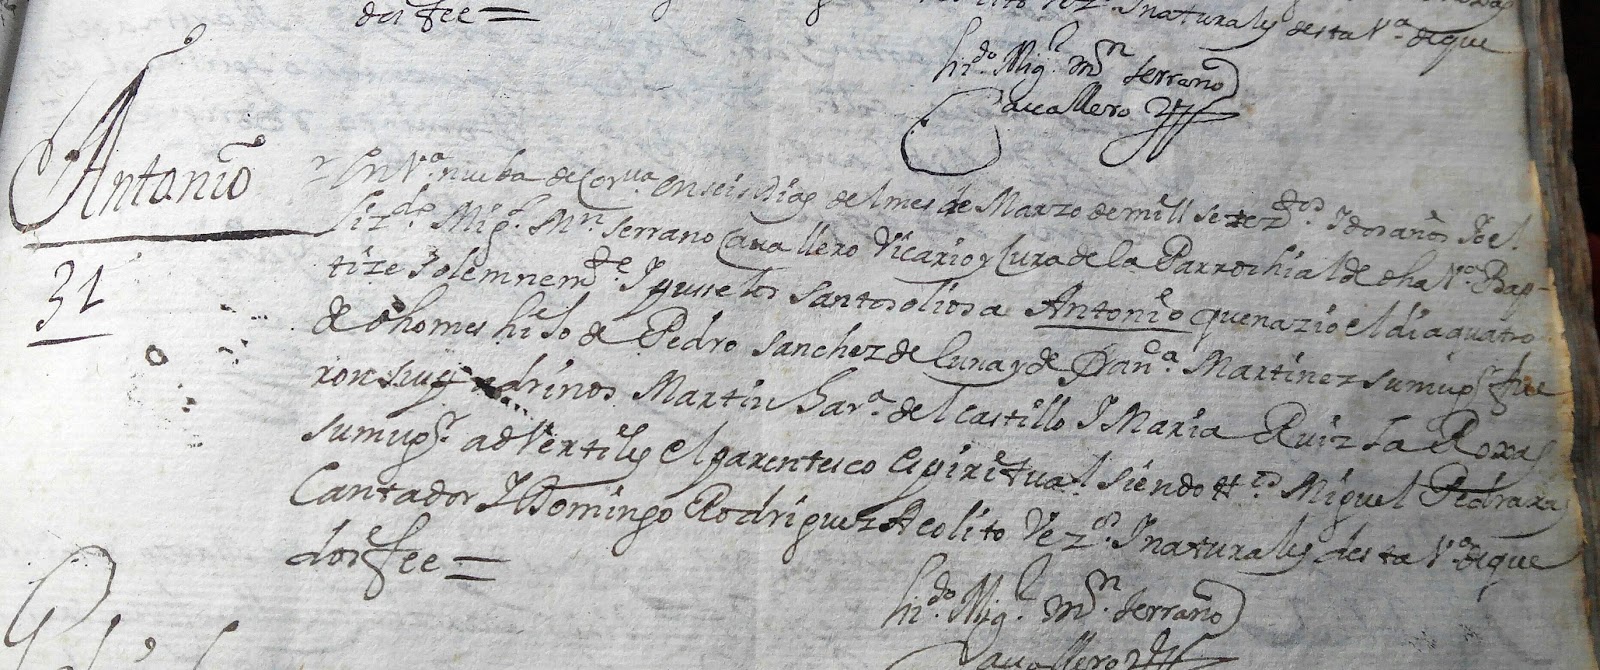 dos fee =
naturales desta Vª. de que
Lizdo. Migl. Mrn. Serrano
Cavallero
Antonio
31
En Vª. nueba de Corva. en seis dias del mes de Marzo de mill setezdos. I dos años Io el
Lizdo. Migl. Mrn. Serrano Cavallero Vicario y Cura de la Parrochial de dha Vª. Bap-
tize Solemnemte. I puse los santos olios a Antonio que nazio el dia quatro
de dho mes hijo de Pedro Sanchez de Luna y de Dª Anª. Martinez su mugr. fue
ron sus padrinos Martin Garª. del Castillo I Maria Ruiz La Roxas
su mugr. advertiles el parentesco espiritual siendo ttos. Miguel Pedraxas
Cantador I Domingo Rodriguez Acolito Vezos. I naturales desta Vª. de que
doi fee =
Lizdo. Migl. Mrn. Serrano
Cavallero